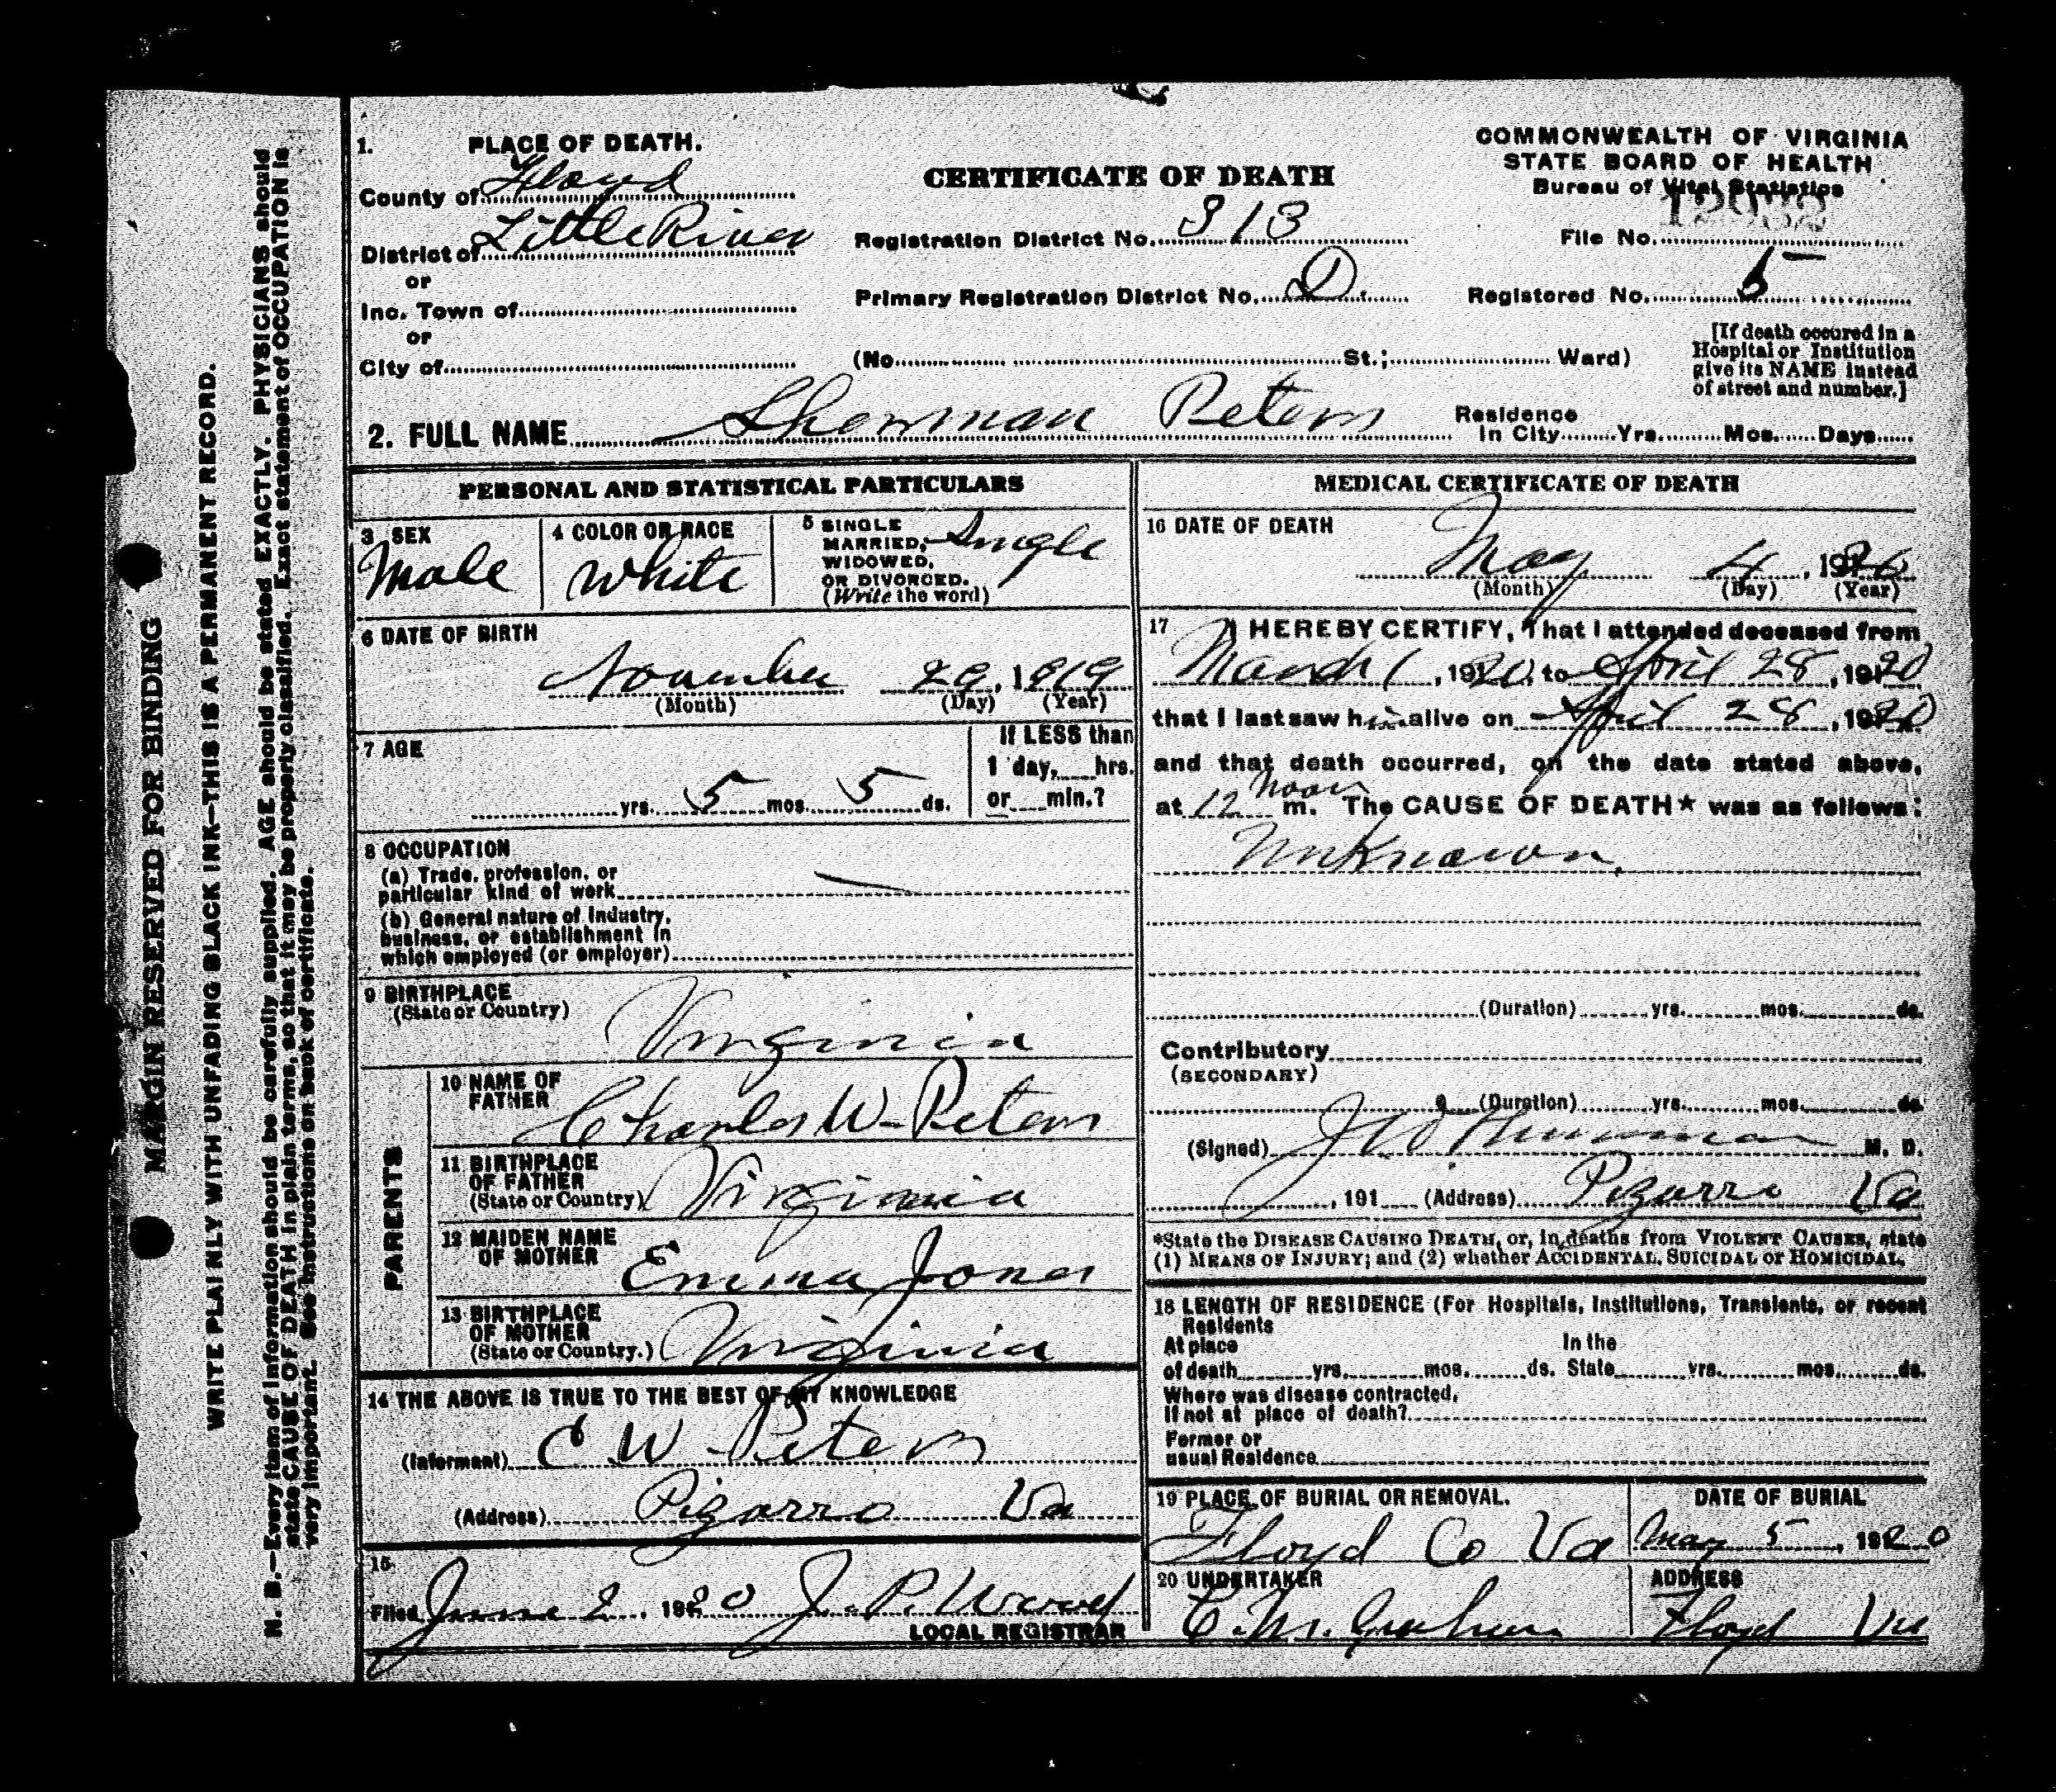 MARGIN RESERVED FOR BINDING
WRITE PLAINLY WITH UNFADING BLACK INK—THIS IS A PERMANENT RECORD.
N. B.—Every item of information should be carefully supplied. AGE should be stated EXACTLY. PHYSICIANS should
state CAUSE OF DEATH in plain terms, so that it may be properly classified. Exact statement of OCCUPATION is
very important. See instructions on back of certificate.
1. PLACE OF DEATH.
County of Floyd
District of Little River
or
Inc. Town of
or
City of
CERTIFICATE OF DEATH
Registration District No. 313
Primary Registration District No. D.
(No. St.; Ward)
COMMONWEALTH OF VIRGINIA
STATE BOARD OF HEALTH
Bureau of Vital Statistics
File No.
Registered No. 5
[If death occured in a
Hospital or Institution
give its NAME instead
of street and number.]
2. FULL NAME Sherman Peters
Residence
In City Yrs. Mos. Days
PERSONAL AND STATISTICAL PARTICULARS
3 SEX
Male
4 COLOR OR RACE
White
5 SINGLE
MARRIED,
WIDOWED,
OR DIVORCED.
(Write the word)
Single
6 DATE OF BIRTH
November 29, 1919
(Month) (Day) (Year)
7 AGE
yrs. 5 mos 5 ds.
If LESS than
1 day, hrs.
or min.?
8 OCCUPATION
(a) Trade, profession, or
particular kind of work
(b) General nature of Industry,
business, or establishment in
which employed (or employer)
9 BIRTHPLACE
(State or Country)
Virginia
PARENTS
10 NAME OF
FATHER
Charles W. Peters
11 BIRTHPLACE
OF FATHER
(State or Country)
Virginia
12 MAIDEN NAME
OF MOTHER
Emma Jones
13 BIRTHPLACE
OF MOTHER
(State or Country.)
Virginia
14 THE ABOVE IS TRUE TO THE BEST OF MY KNOWLEDGE
(Informant) C W Peters
(Address) Pizarro Va
15.
Filed June 2, 1920 J. P. Wood
LOCAL REGISTRAR
MEDICAL CERTIFICATE OF DEATH
16 DATE OF DEATH
May 4, 1920
(Month) (Day) (Year)
17 I HEREBY CERTIFY, That I attended deceased from
March 1, 1920, to April 28, 1920
that I last saw him alive on April 28, 1920
and that death occurred, on the date stated above,
at 12 noon m. The CAUSE OF DEATH* was as follows:
Unknown.
(Duration) yrs. mos. ds.
Contributory
(SECONDARY)
(Duration) yrs. mos. ds.
(Signed) J W M. D.
, 191 (Address) Pizarro Va
*State the DISEASE CAUSING DEATH, or, in deaths from VIOLENT CAUSES, state
(1) MEANS OF INJURY; and (2) whether ACCIDENTAL, SUICIDAL or HOMICIDAL.
18 LENGTH OF RESIDENCE (For Hospitals, Institutions, Transients, or recent
Residents
At place In the
of death yrs. mos. ds. State yrs. mos. ds.
Where was disease contracted,
If not at place of death?
Former or
usual Residence
19 PLACE OF BURIAL OR REMOVAL.
Floyd Co Va
DATE OF BURIAL
May 5, 1920
20 UNDERTAKER
C. M. Graham
ADDRESS
Floyd Va